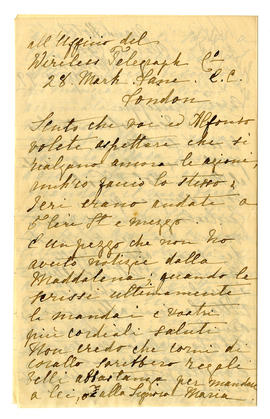 all'Ufficio del
Wireless Telegraph Co
28. Mark Lane. E.C.
London
Sento che voi ed Alfonso
volete aspettare che si
rialzano ancora le azioni,
anch'io faccio lo stesso;
Ieri erano andate a
6 lire St e mezzo.
È un pezzo che non ho
avuto notizie dalla
Maddalena; quando le
scrissi ultimamente
le mandai i vostri
più cordiali saluti
Non credo che corni di
corallo sarebbero regali
belli abbastanza per mandare
a lei, o alla Signora Maria